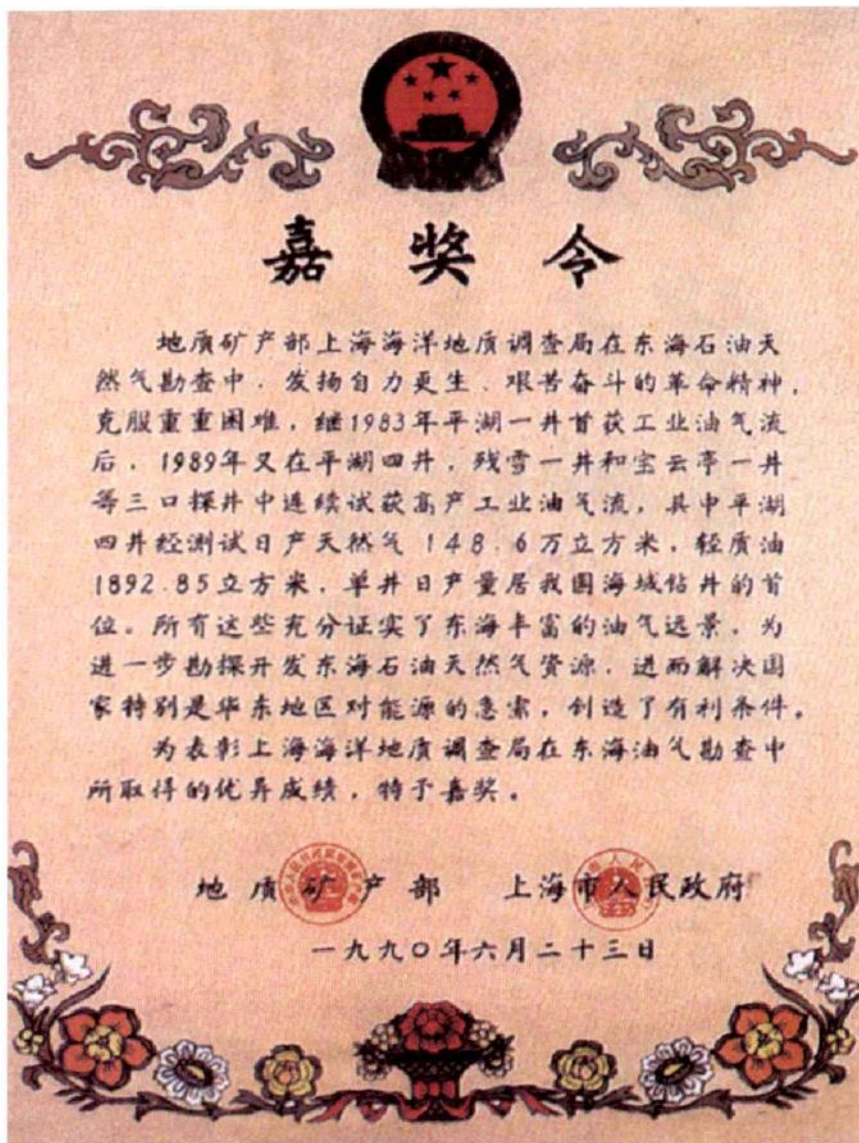 嘉奖令
地质矿产部上海海洋地质调查局在东海石油天
然气勘查中，发扬自力更生、艰苦奋斗的革命精神，
克服重重困难，继1983年平湖一井首获工业油气流
后，1989年又在平湖四井，残雪一井和宝云亭一井
等三口探井中连续试获高产工业油气流，其中平湖
四井经测试日产天然气148.6万立方米，轻质油
1892.85立方米，单井日产量居我国海域钻井的首
位。所有这些充分证实了东海丰富的油气远景，为
进一步勘探开发东海石油天然气资源，进而解决国
家特别是华东地区对能源的急需，创造了有利条件。
为表彰上海海洋地质调查局在东海油气勘查中
所取得的优异成绩，特予嘉奖。
地质矿产部 上海市人民政府
一九九〇年六月二十三日